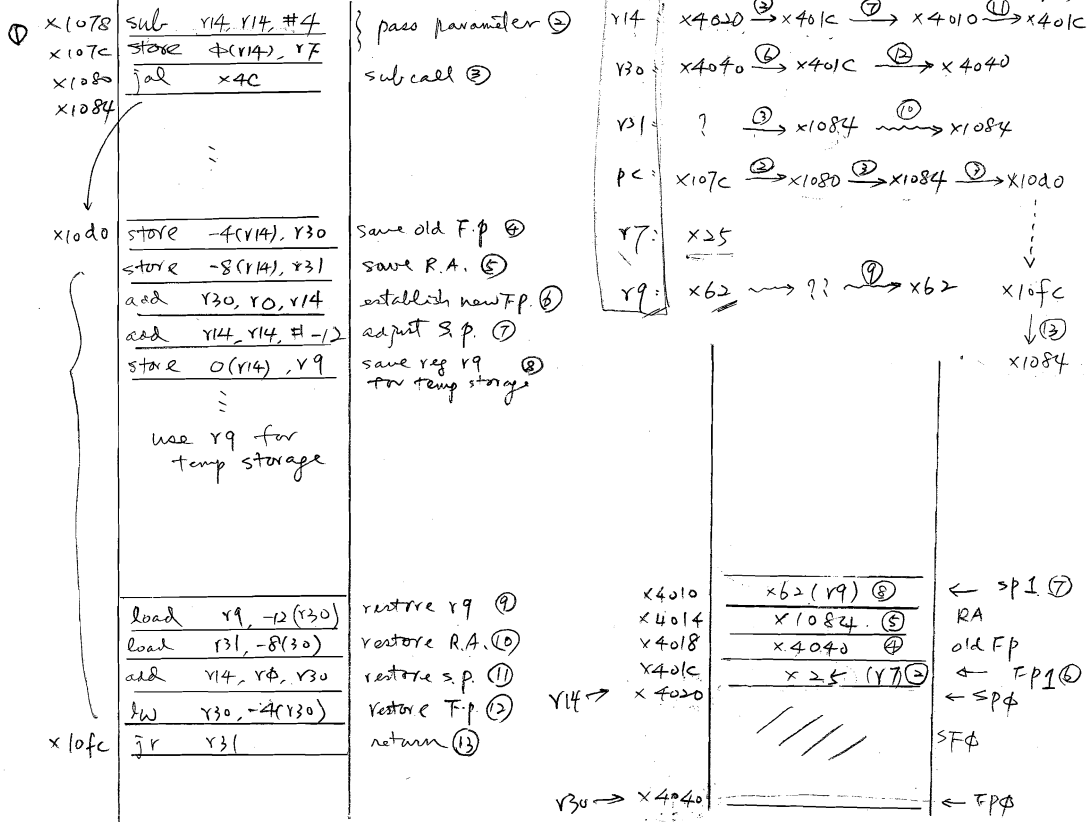 ① x1078 sub r14, r14, #4 } pass parameter ②
x107c store φ(r14), r7
x1080 jal x4C subcall ③
x1084
⋮
x10d0 store -4(r14), r30 save old F.p ④
store -8(r14), r31 save R.A. ⑤
add r30, r0, r14 establish new F.p. ⑥
add r14, r14, #-12 adjust S.p. ⑦
store 0(r14), r9 save reg r9 ⑧
for temp storage
⋮
use r9 for
temp storage
load r9, -12(r30) restore r9 ⑨
load r31, -8(30) restore R.A. ⑩
add r14, rφ, r30 restore s.p. ⑪
lw r30, -4(r30) restore F.p. ⑫
x10fc jr r31 return ⑬
r14 x4020 ② → x401c ⑦ → x4010 ⑪ → x401c
r30: x4040 ⑥ → x401c ⑫ → x4040
r31: ? ③ → x1084 ⑩ → x1084
pc: x107c ② → x1080 ③ → x1084 ③ → x10d0
r7: x25
r9: x62 → ?? ⑨ → x62 x10fc
↓ ⑬
x1084
x4010 x62 (r9) ⑧ ← sp1 ⑦
x4014 x1084 ⑤ RA
x4018 x4040 ④ old Fp
x401c x25 (r7) ② ← Fp1 ⑥
r14 → x4020 ← spφ
SFφ
r30 → x4040 ← Fpφ